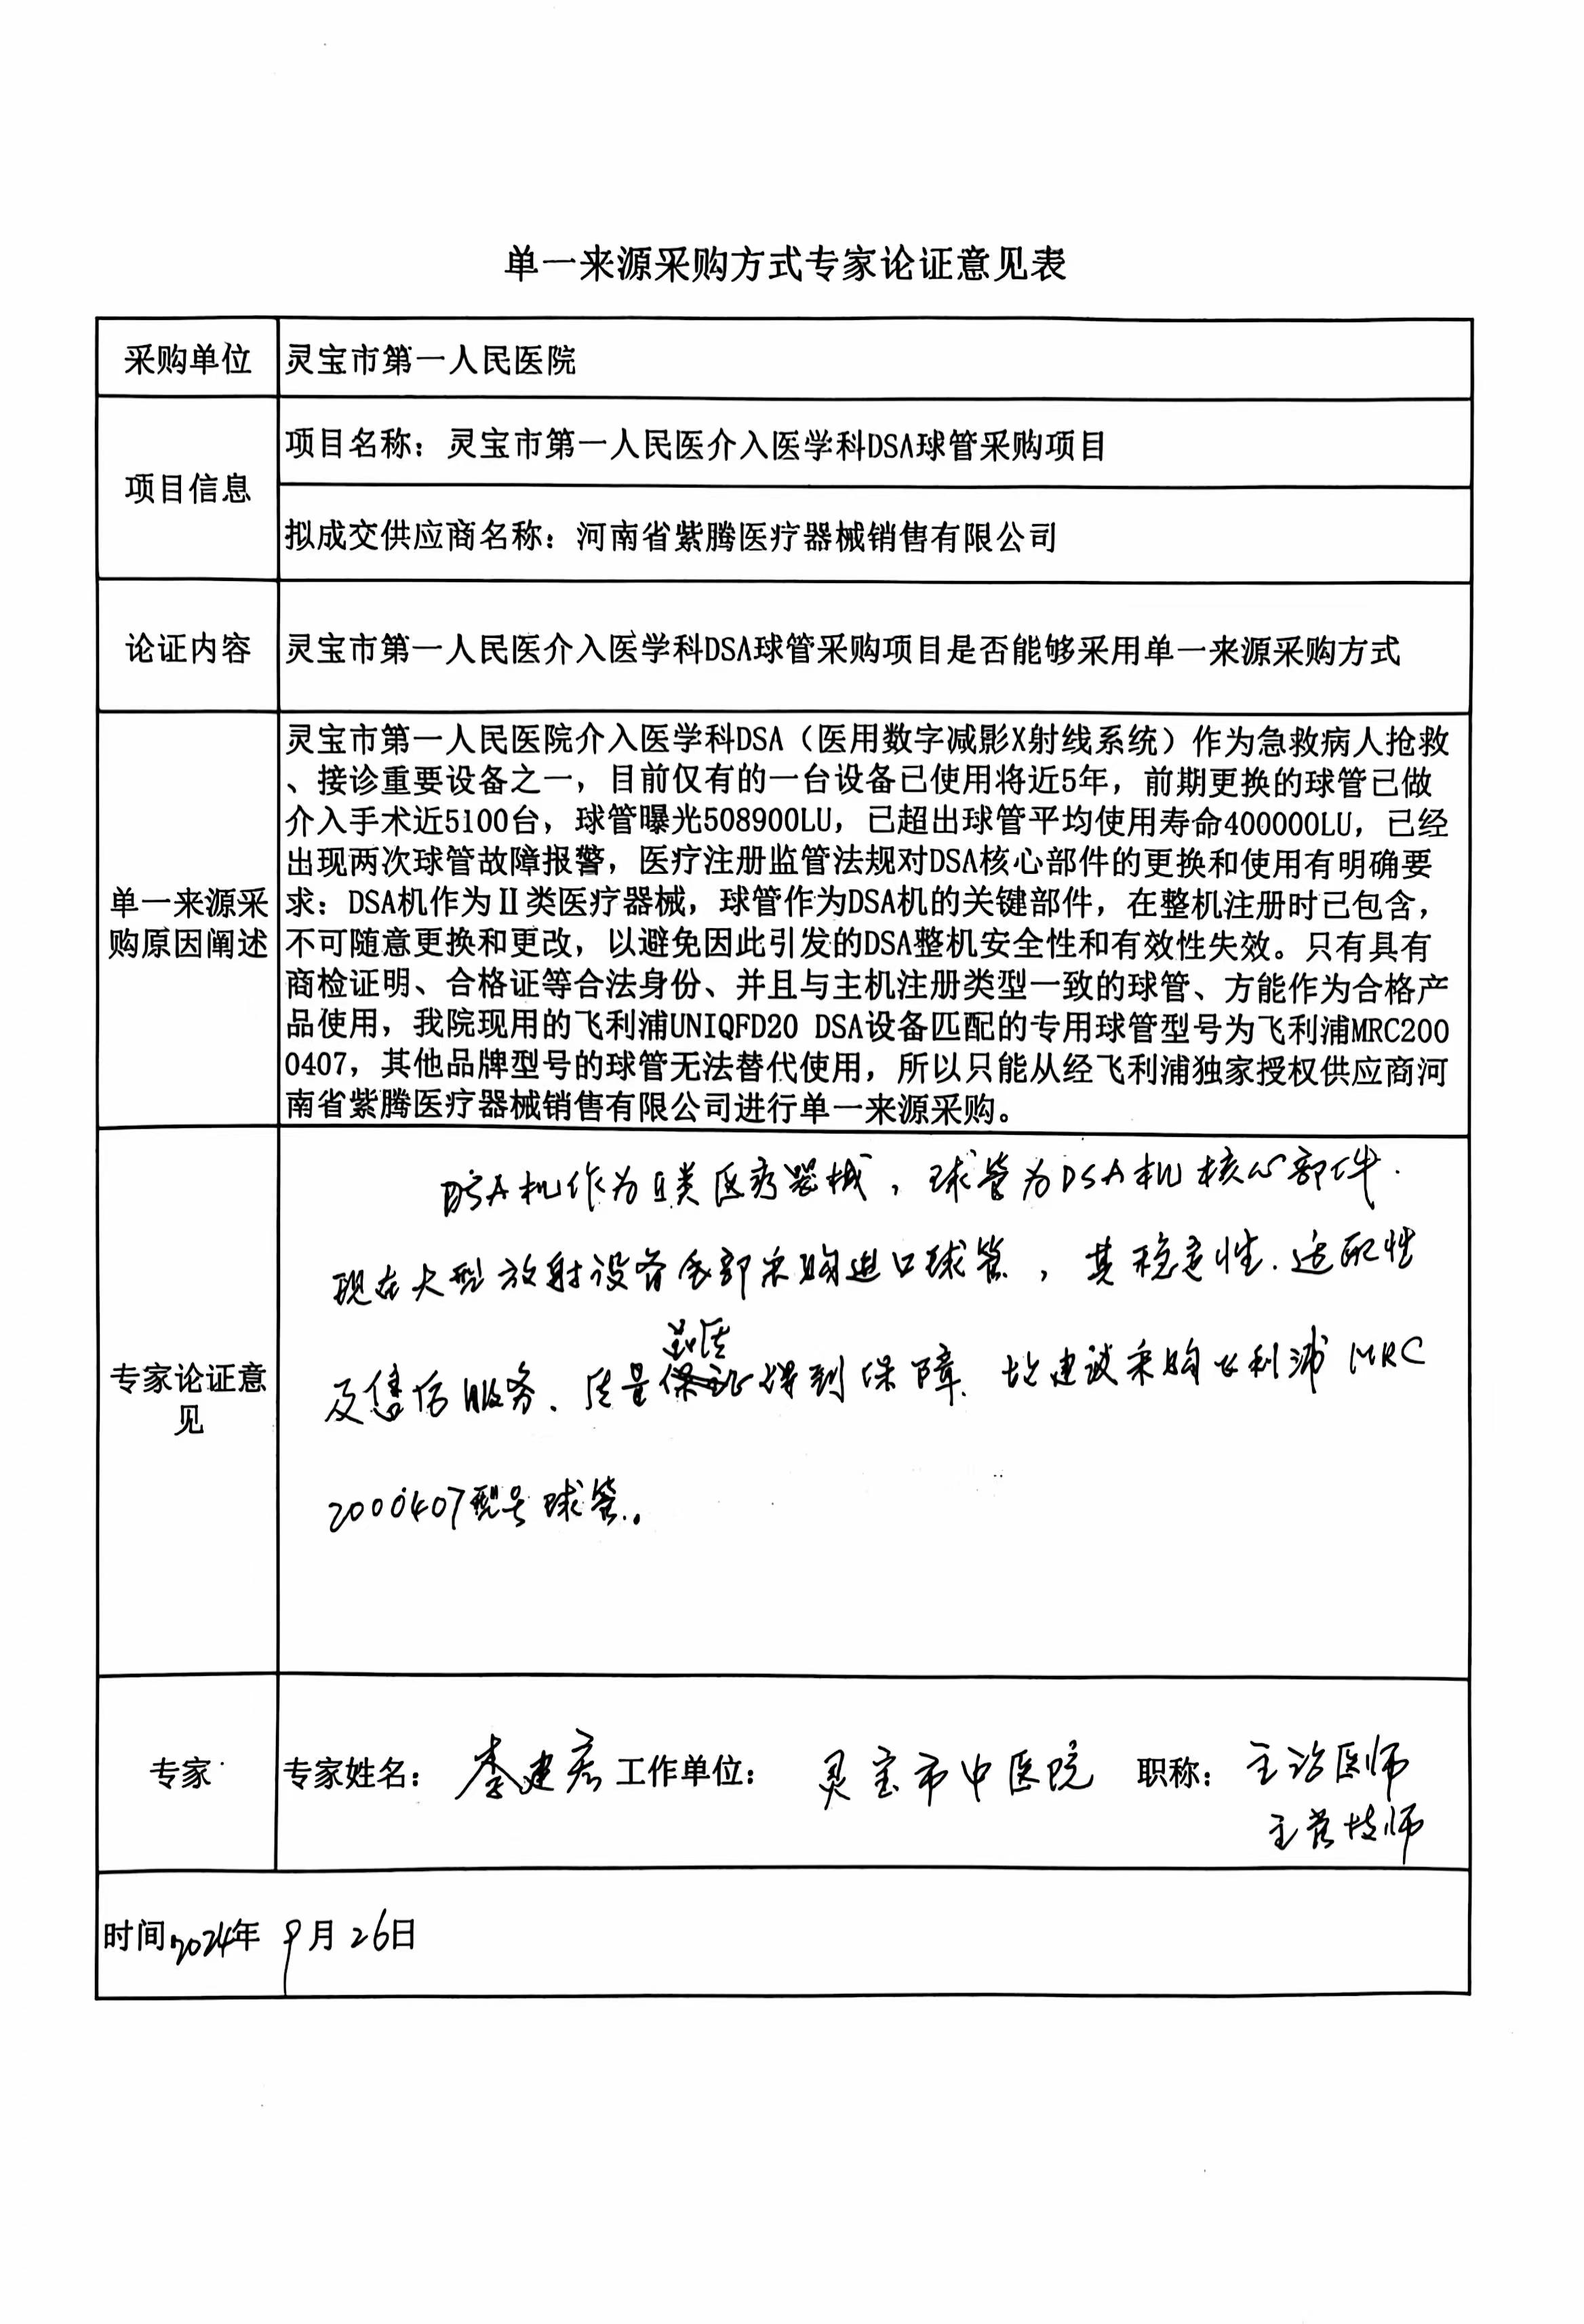 单一来源采购方式专家论证意见表
采购单位
灵宝市第一人民医院
项目信息
项目名称：灵宝市第一人民医介入医学科DSA球管采购项目
拟成交供应商名称：河南省紫腾医疗器械销售有限公司
论证内容
灵宝市第一人民医介入医学科DSA球管采购项目是否能够采用单一来源采购方式
单一来源采
购原因阐述
灵宝市第一人民医院介入医学科DSA（医用数字减影X射线系统）作为急救病人抢救
、接诊重要设备之一，目前仅有的一台设备已使用将近5年，前期更换的球管已做
介入手术近5100台，球管曝光508900LU，已超出球管平均使用寿命400000LU，已经
出现两次球管故障报警，医疗注册监管法规对DSA核心部件的更换和使用有明确要
求：DSA机作为Ⅱ类医疗器械，球管作为DSA机的关键部件，在整机注册时已包含，
不可随意更换和更改，以避免因此引发的DSA整机安全性和有效性失效。只有具有
商检证明、合格证等合法身份、并且与主机注册类型一致的球管、方能作为合格产
品使用，我院现用的飞利浦UNIQFD20 DSA设备匹配的专用球管型号为飞利浦MRC200
0407，其他品牌型号的球管无法替代使用，所以只能从经飞利浦独家授权供应商河
南省紫腾医疗器械销售有限公司进行单一来源采购。
专家论证意
见
DSA机作为Ⅱ类医疗器械，球管为DSA机核心部件.
现在大型放射设备全部采购进口球管，其稳定性.适配性
及售后服务、质量得到保障、故建议采购飞利浦MRC
2000407型号球管。
专家
专家姓名：李建宏 工作单位：灵宝市中医院 职称：主治医师
主管技师
时间2024年9月26日